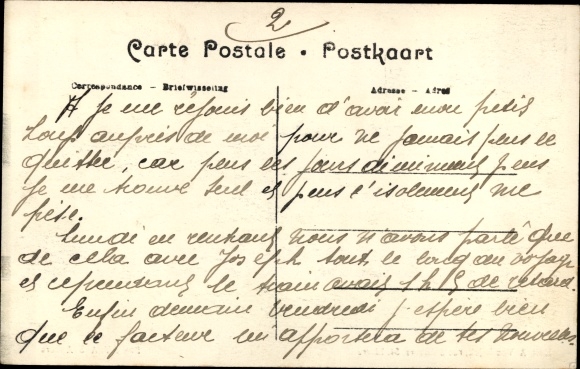 2
Carte Postale • Postkaart
Correspondance – Briefwisseling
Adresse – Adres
Je me réjouis bien d'avoir mon petit
Loup auprès de moi pour ne jamais plus le
quitter, car plus les jours diminuent plus
je me trouve seul et plus l'isolement me
pèse.
Lundi en rentrant nous n'avons parlé que
de cela avec Joseph tout le long du voyage
et cependant le train avait 1 h 15 de retard.
Enfin demain vendredi j'espère bien
que le facteur m'apportera de tes nouvelles